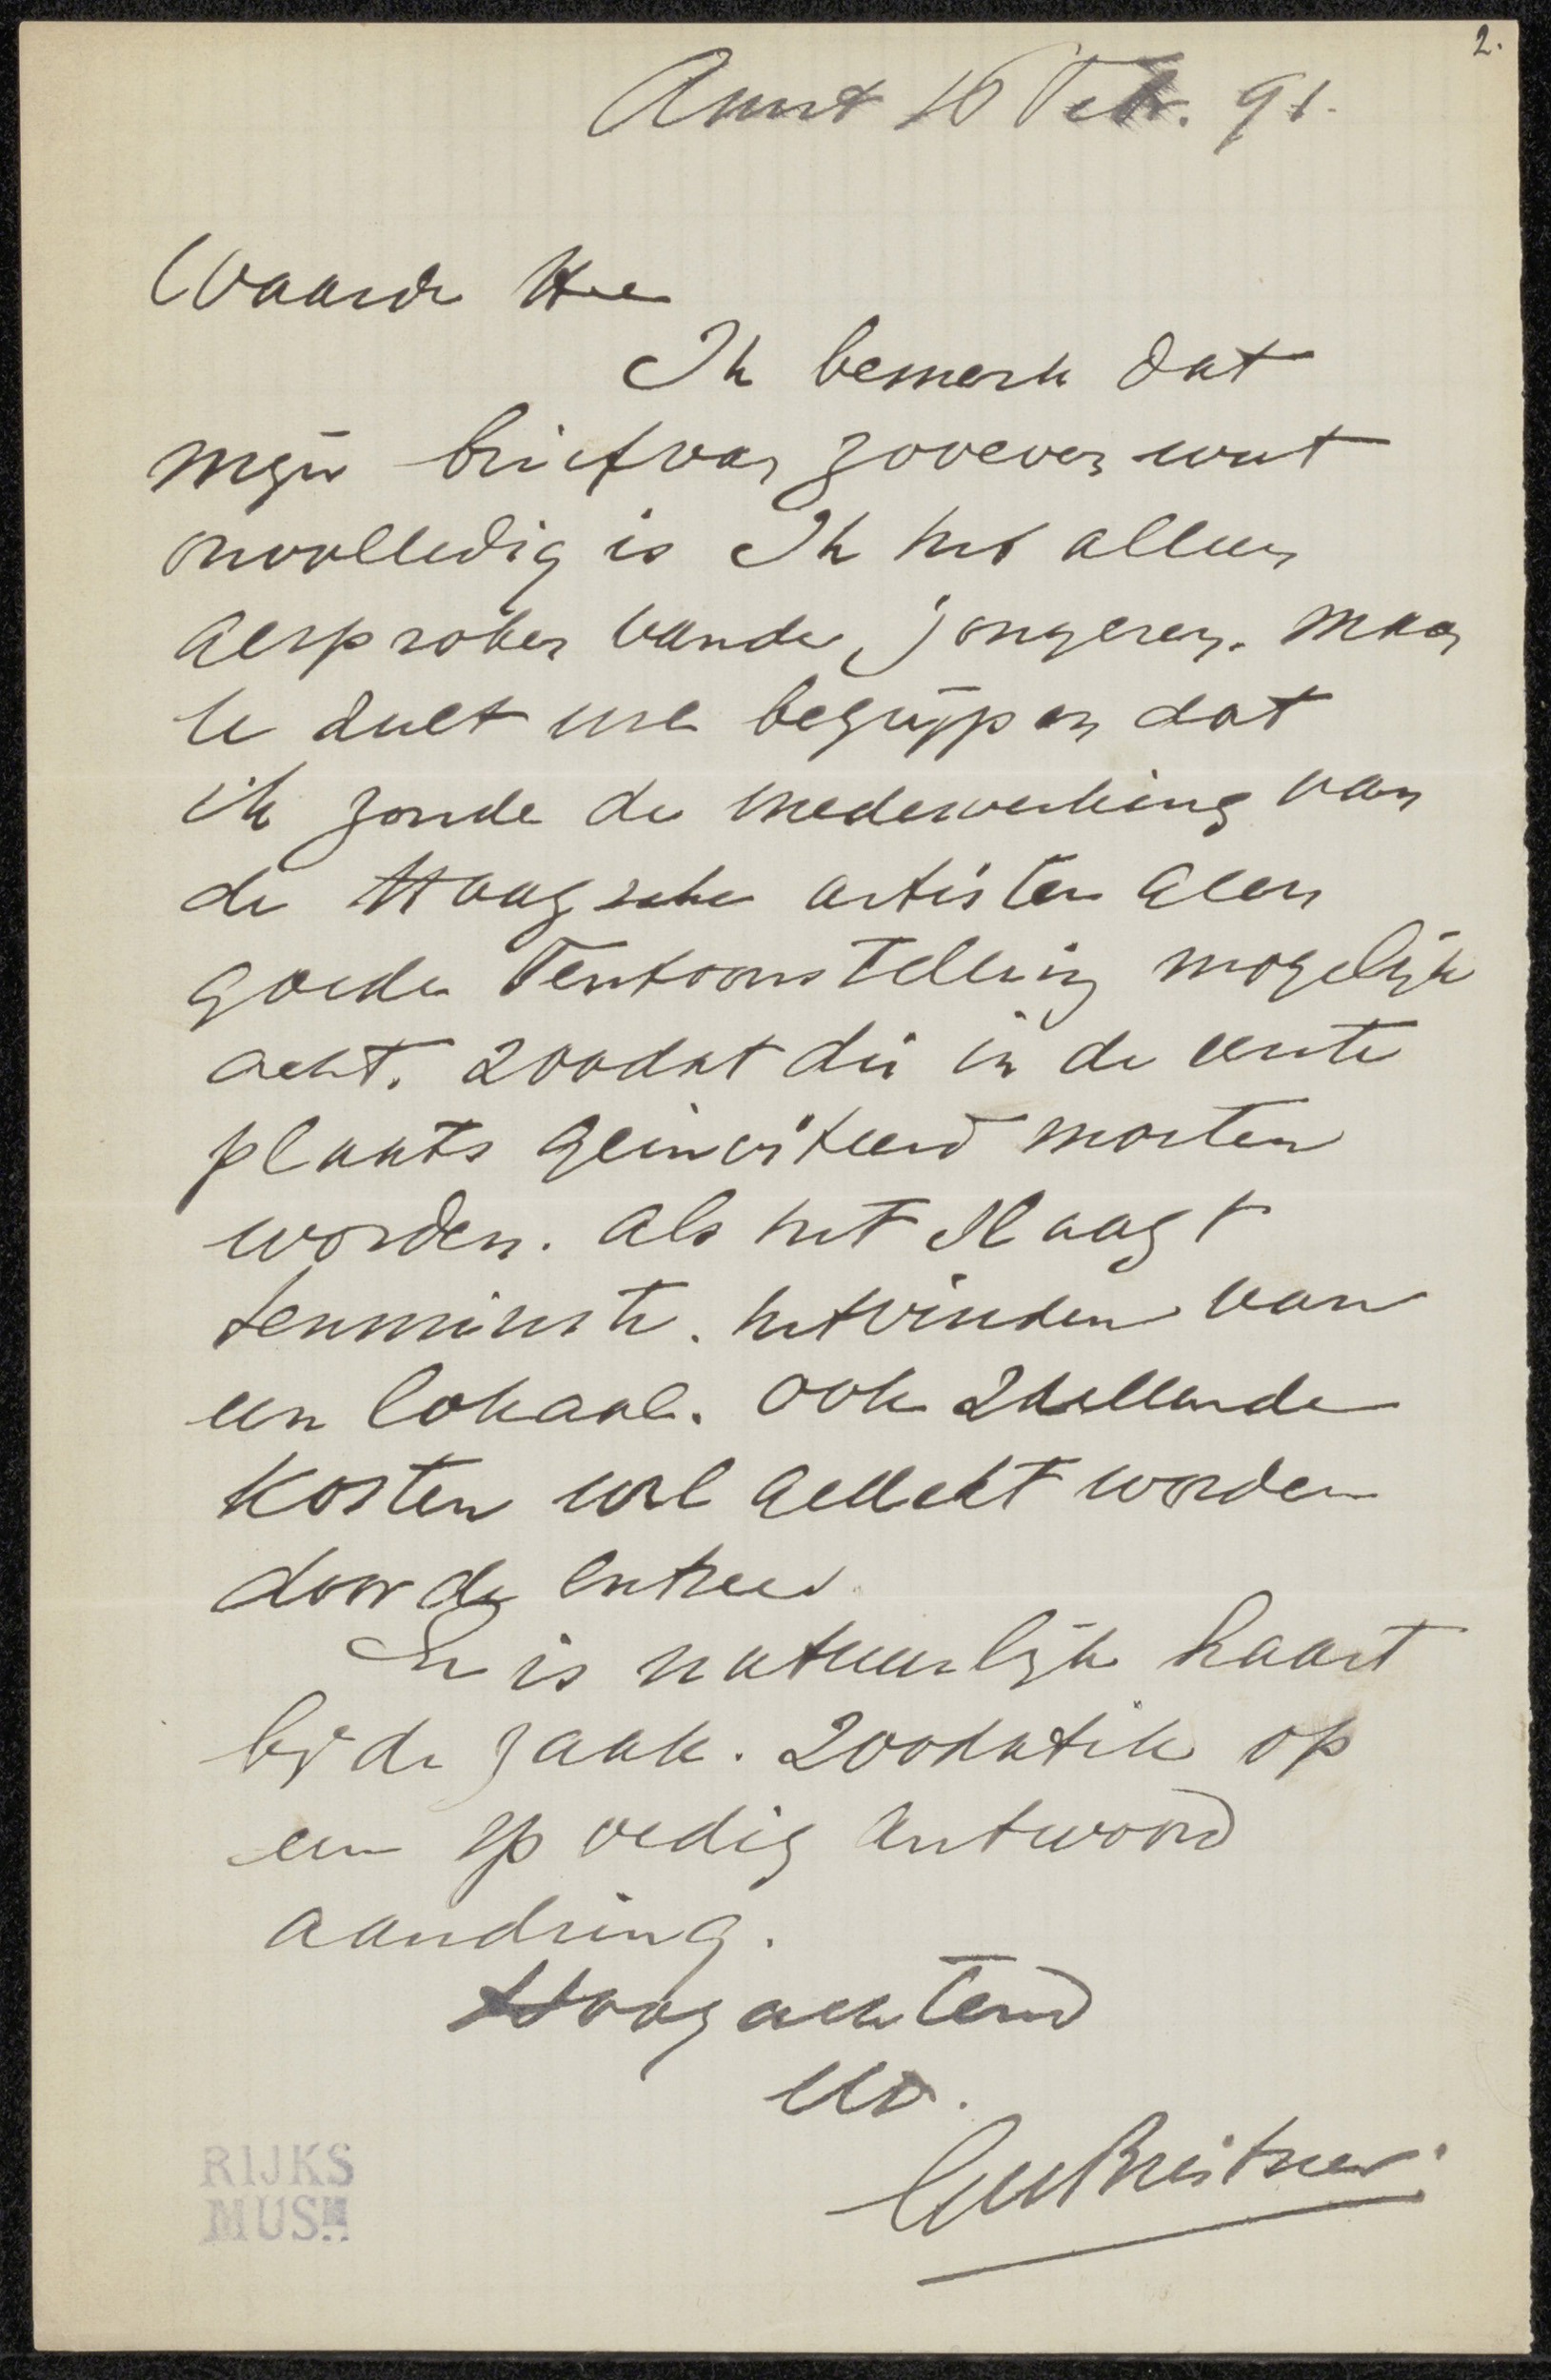 2.
Amst 16 Febr. 91.
Waarde Heer
Ik bemerk dat
mijn brief van zooeven wat
onvolledig is Ik heb alleen
gesproken van de jongeren. maar
U zult wel begrijpen dat
ik zonder de medewerking van
de Haagsche artisten geen
goede Tentoonstelling mogelijk
acht. zoodat die in de eerste
plaats geinviteerd moeten
worden. als het slaagt
tenminste. het vinden van
een lokaal. ook zullen de
kosten wel gedekt worden
door de entrees.
Er is natuurlijk haast
bij de zaak. zoodat ik op
een spoedig antwoord
aandring.
Hoogachtend
UD.
GHBreitner.
RIJKS
MUSM